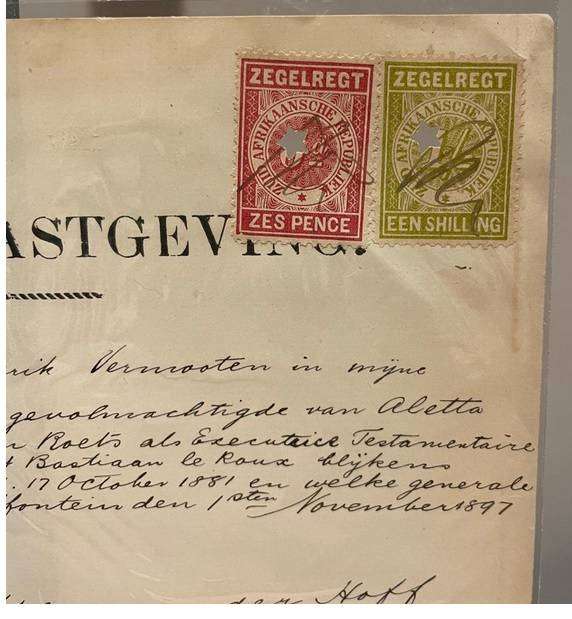 ZEGELREGT
ZUID AFRIKAANSCHE REPUBLIEK
ZES PENCE
ZEGELREGT
ZUID AFRIKAANSCHE REPUBLIEK
EEN SHILLING
ASTGEVING.
rik Vermooten in mijne
gevolmachtigde van Aletta
n Roets als Executrice Testamentaire
Bastiaan le Roux blijkens
17 October 1881 en welke generale
fontein den 1sten November 1897
der Hoff